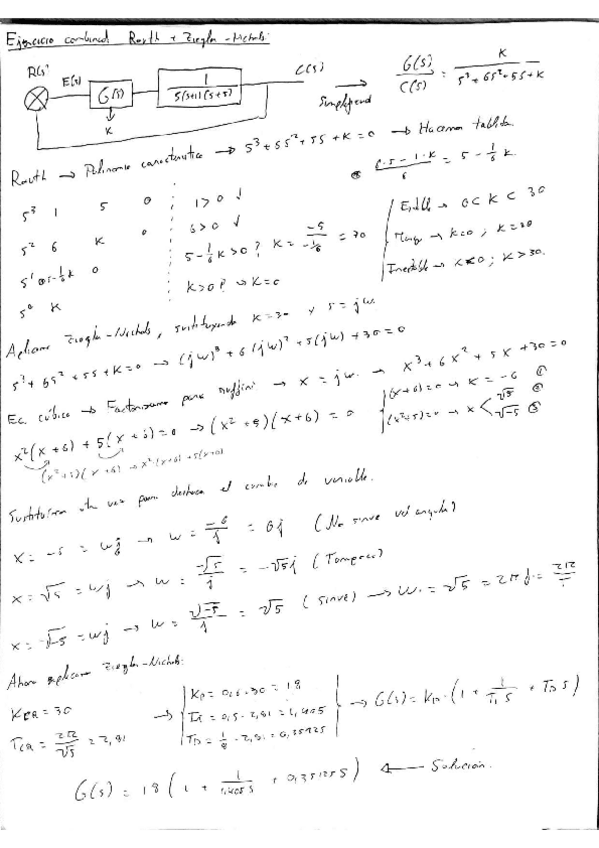 Ejercicio combinad Routh + Ziegler-Nichols:
R(s) E(s) G(s) 1/(s(s+1)(s+5)) C(s) → G(s)/C(s) = K/(s³+6s²+5s+K)
K
Routh → Polinomio característico → s³+6s²+5s+K=0 → Hacemos tablita.
s³ 1 5 0 1>0 ↓
6·5-1·K/6 = 5 - 1/6 K
s² 6 K 0 6>0 ↓
s¹ 5-1/6K 0 5-1/6K>0? K = -5/(-1/6) = 30
s⁰ K K>0? → K=0
Estable → 0<K<30
K=0; K=30
Inestable → K<0; K>30.
Aplicamos Ziegler-Nichols, sustituyendo K=30 y s=jw.
s³+6s²+5s+K=0 → (jw)³+6(jw)²+5(jw)+30=0
Ec. cúbica → Factorizamos para Ruffini → x=jw. → x³+6x²+5x+30=0
x²(x+6)+5(x+6)=0 → (x²+5)(x+6)=0 (x+6)=0 → x=-6 ①
(x²+5)=0 → x √5 ② √-5 ③
(x²+5)(x+6) → x²(x+6)+5(x+6)
Sustituimos otra vez para deshacer el cambio de variable.
x = -5 = wj → w = -6/j = 6j (No sirve vel angular)
x = √5 = wj → w = -√5/j = -√5j (Tampoco)
x = √-5 = wj → w = √-5/j = √5 (sirve) → w = √5 = 2πf = 2π/T
Ahora aplicamos Ziegler-Nichols:
K_CR = 30
T_CR = 2π/√5 = 2,81
→ Kp = 0,6·30 = 18
Ti = 0,5·2,81 = 1,405
T_D = 1/8·2,81 = 0,35125
→ G(s) = Kp·(1 + 1/(Ti s) + T_D s)
G(s) = 18 (1 + 1/(1,405 s) + 0,35125 s) ← Solución.